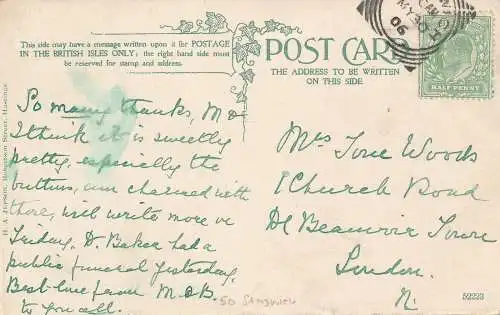 This side may have a message written upon it for POSTAGE
IN THE BRITISH ISLES ONLY; the right hand side must
be reserved for stamp and address.
POST CARD
THE ADDRESS TO BE WRITTEN
ON THIS SIDE
MY 30
06
HALF PENNY
So many thanks, M.D.
I think it is sweetly
pretty, especially the
buttons, am charmed with
these, will write more on
Friday. D. Baker had a
public funeral yesterday.
Best love from M.D.B.
to you all.
50 SANDWICH
Mrs Woods
1 Church Road
De Beauvoir Town
London.
N.
52223
H. A. Jepson, Robertson Street, Hastings